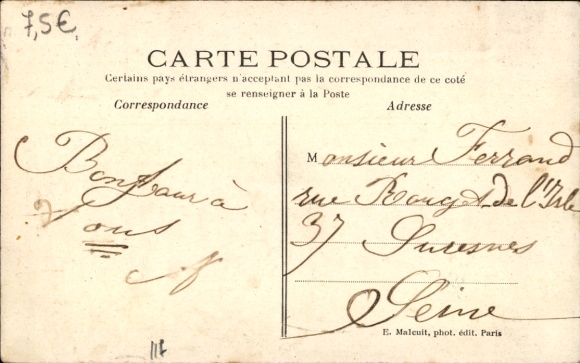 7,5€
CARTE POSTALE
Certains pays étrangers n'acceptant pas la correspondance de ce coté
se renseigner à la Poste
Correspondance
Adresse
Bonjour à
Vous
Monsieur Ferrand
rue Rouget de l'Isle
37 Suresnes
Seine
E. Malcuit, phot. édit. Paris